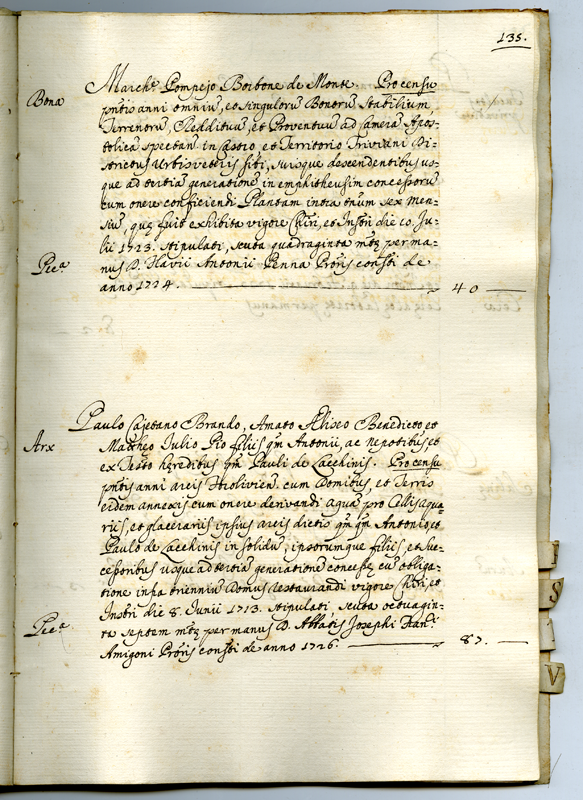 135.
Bona
March.e Pompejo Borbone de Monte. Pro censu
pntis anni omniu, et singuloru Bonoru Stabilium
Terrenoru, Redditiuu, et Proventuu ad Camera Apos=
tolica spectan. in Castro, et Territorio Triviani Di=
strictus Urbisveteris siti, suisque descendentibus us=
que ad tertia generatione in emphitheusim concessoru
cum onere conficiendi Plantam intra tnum sex men=
siu, quę fuit exhibita vigore Chiri, et Instri die 10. Ju=
lii 1723. stipulati, scuta quadraginta mtę per ma=
Pec.a
nus D. Flavii Antonii Penna Proris constti de
anno 1724. 40
Paulo Cajetano Brando, Amato Aliseo Benedicto et
Arx
Mattheo Julio Pio filiis qm Antonii, ac nepotibus, et
ex Testo hęredibus qm Pauli de Lacchinis. Pro censu
pntis anni arcis Hiolivien. cum Domibus, et Terris
eidem annexis cum onere derivandi aqua pro
riis, et glaciariis ipsius arcis dictis qm qm Antonio, et
Paulo de Lacchinis in solidu, ipsorumque filiis, et suc=
cessoribus usque ad tertia generatione concessę cu obliga=
tione infra trienniu Domus restaurandi vigore Chiri, et
Instri die 8. Junii 1713. stipulati, scuta octuagin=
Pec.a
ta septem mtę per manus D. Abbatis Josephi
Amigoni Proris constti de anno 1726. 87.
S
V